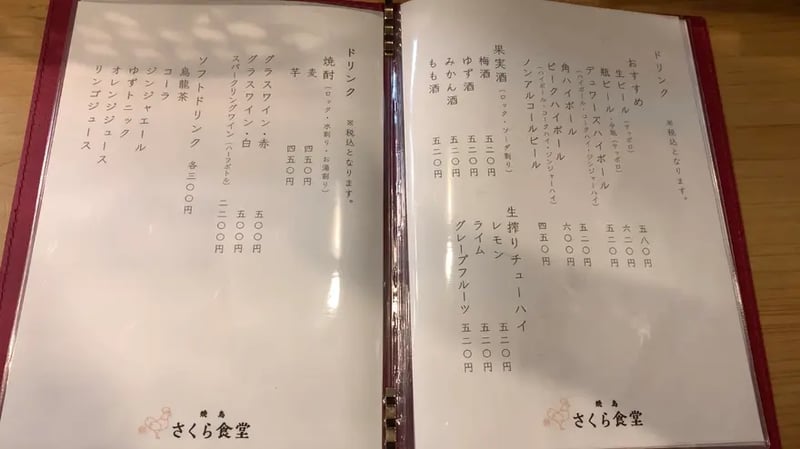 ドリンク ※税込となります。
おすすめ
生ビール(サッポロ) 五八〇円
瓶ビール・中瓶(サッポロ) 六二〇円
デュワーズハイボール 五二〇円
(ハイボール・コークハイ・ジンジャーハイ)
角ハイボール 六〇〇円
ピークハイボール
(ハイボール・コークハイ・ジンジャーハイ)
ノンアルコールビール 四五〇円
果実酒(ロック・ソーダ割り)
梅酒 五二〇円
ゆず酒 五二〇円
みかん酒 五二〇円
もも酒 五二〇円
生搾りチューハイ
レモン 五二〇円
ライム 五二〇円
グレープフルーツ 五二〇円
焼鳥
さくら食堂
ドリンク ※税込となります。
焼酎(ロック・水割り・お湯割り)
麦 四五〇円
芋 四五〇円
グラスワイン・赤 五〇〇円
グラスワイン・白 五〇〇円
スパークリングワイン(ハーフボトル) 二二〇〇円
ソフトドリンク 各三〇〇円
烏龍茶
コーラ
ジンジャエール
ゆずトニック
オレンジジュース
リンゴジュース
焼鳥
さくら食堂